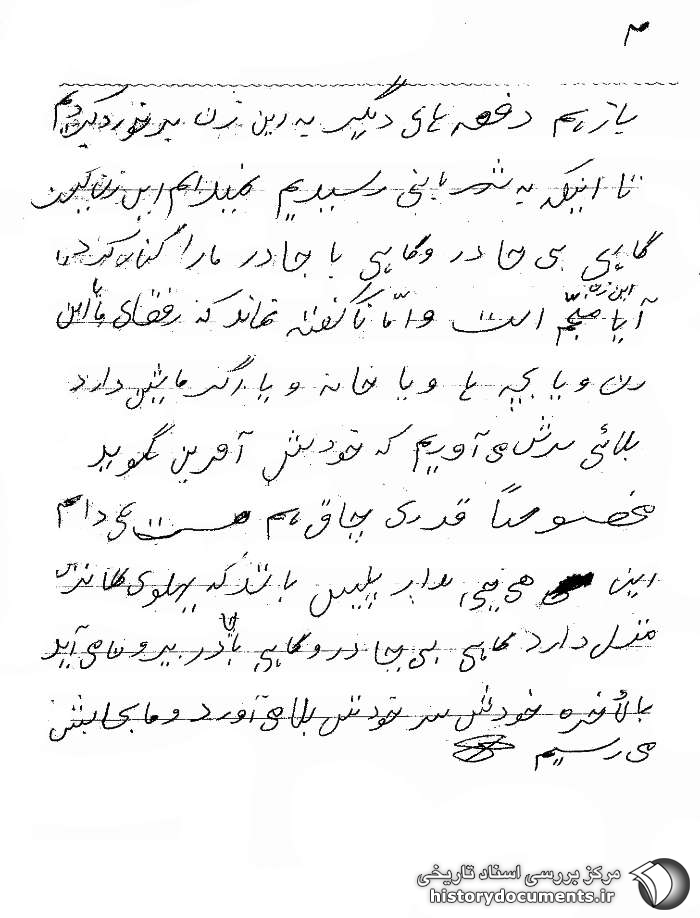 ۳
باز هم دفعه های دیگر به این زن برخورد کردیم
تا اینکه به شهربانی رسیدیم نمیدانم این زن کیست
گاهی بی چادر و گاهی با چادر ما را
این زن
آیا منجم است و امّا ناگفته نماند که رفقای ما با این
زن و یا بچه ها و یا خانه و یا اگر ماشین دارد
بلائی سرش می آوریم که خودش آفرین بگوید
مخصوصاً قدری چاق هم هست می دانم
این برابر پلیس باشد که پهلوی کلانتری
منزل دارد گاهی بی چادر و گاهی با چادر بیرون می آید
بالاخره خودش سر خودش بلا می آورد و ما بحسابش
می رسیم
مرکز بررسی اسناد تاریخی
historydocuments.ir